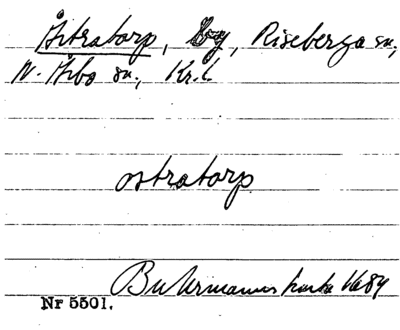 Åstratorp, By, Riseberga sn,
N. Åsbo hd., Kr. l.
ostratorp
Buhrmanns karta 1684
Nr 5501.